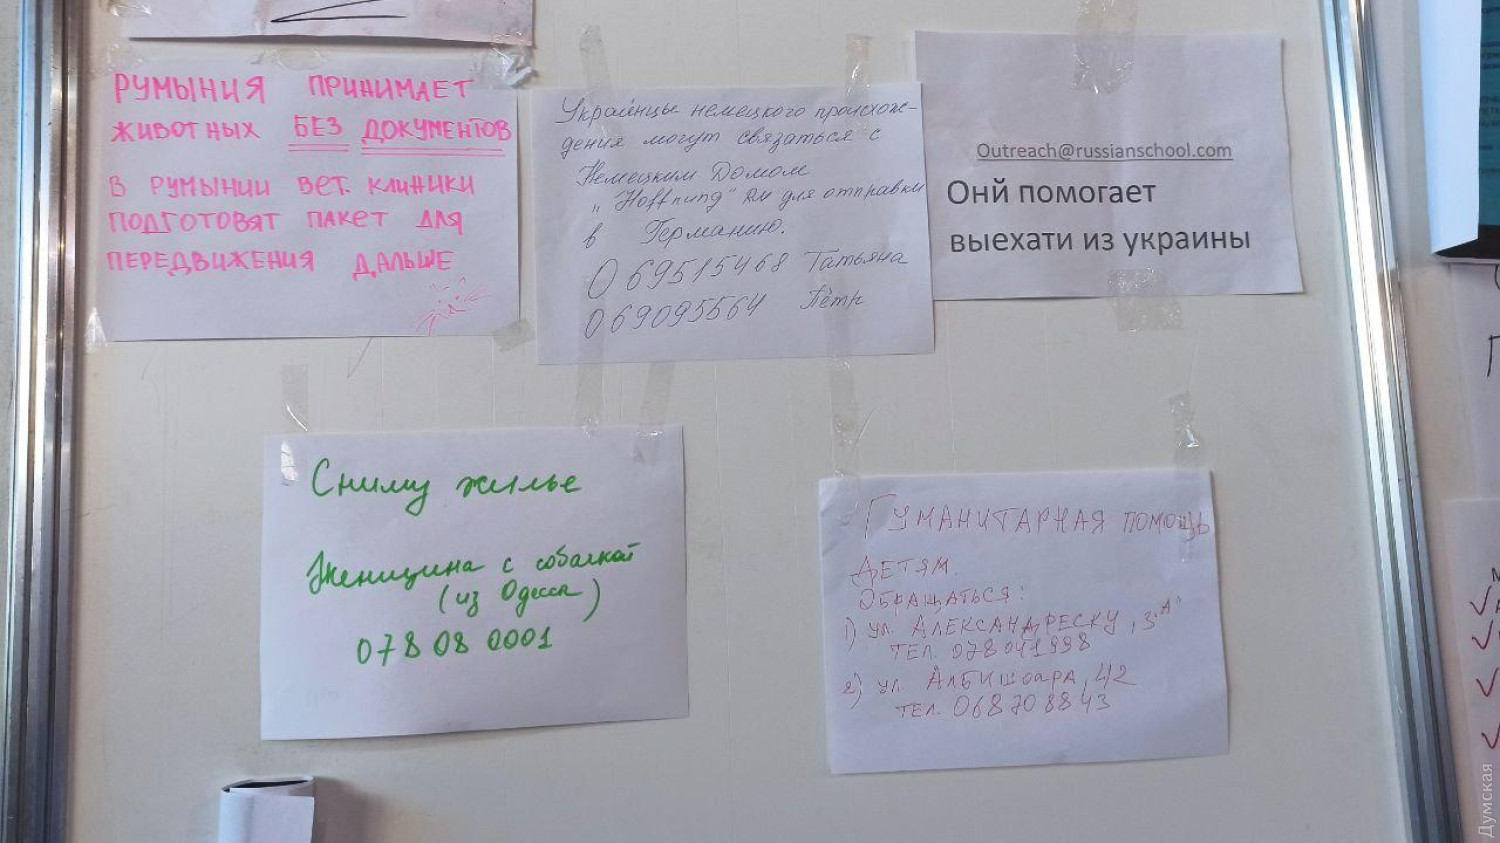 РУМЫНИЯ ПРИНИМАЕТ
ЖИВОТНЫХ БЕЗ ДОКУМЕНТОВ
В РУМЫНИИ ВЕТ. КЛИНИКИ
ПОДГОТОВЯТ ПАКЕТ ДЛЯ
ПЕРЕДВИЖЕНИЯ ДАЛЬШЕ
Украинцы немецкого происхож-
дения могут связаться с
Немецким Домом
"Hoffnung" RM для отправки
в Германию.
069515468 Татьяна
069095564 Пётр
Outreach@russianschool.com
Онй помогает
выехати из украины
Сниму жилье
Женщина с собачкой
(из Одесса)
078 08 0001
ГУМАНИТАРНАЯ ПОМОЩЬ
ДЕТЯМ.
ОБРАЩАТЬСЯ:
1) ул. АЛЕКСАНДРЕСКУ, 3 "А"
ТЕЛ. 078041998
2) ул. АЛБИШОАРА, 42
ТЕЛ. 068708843
Думская